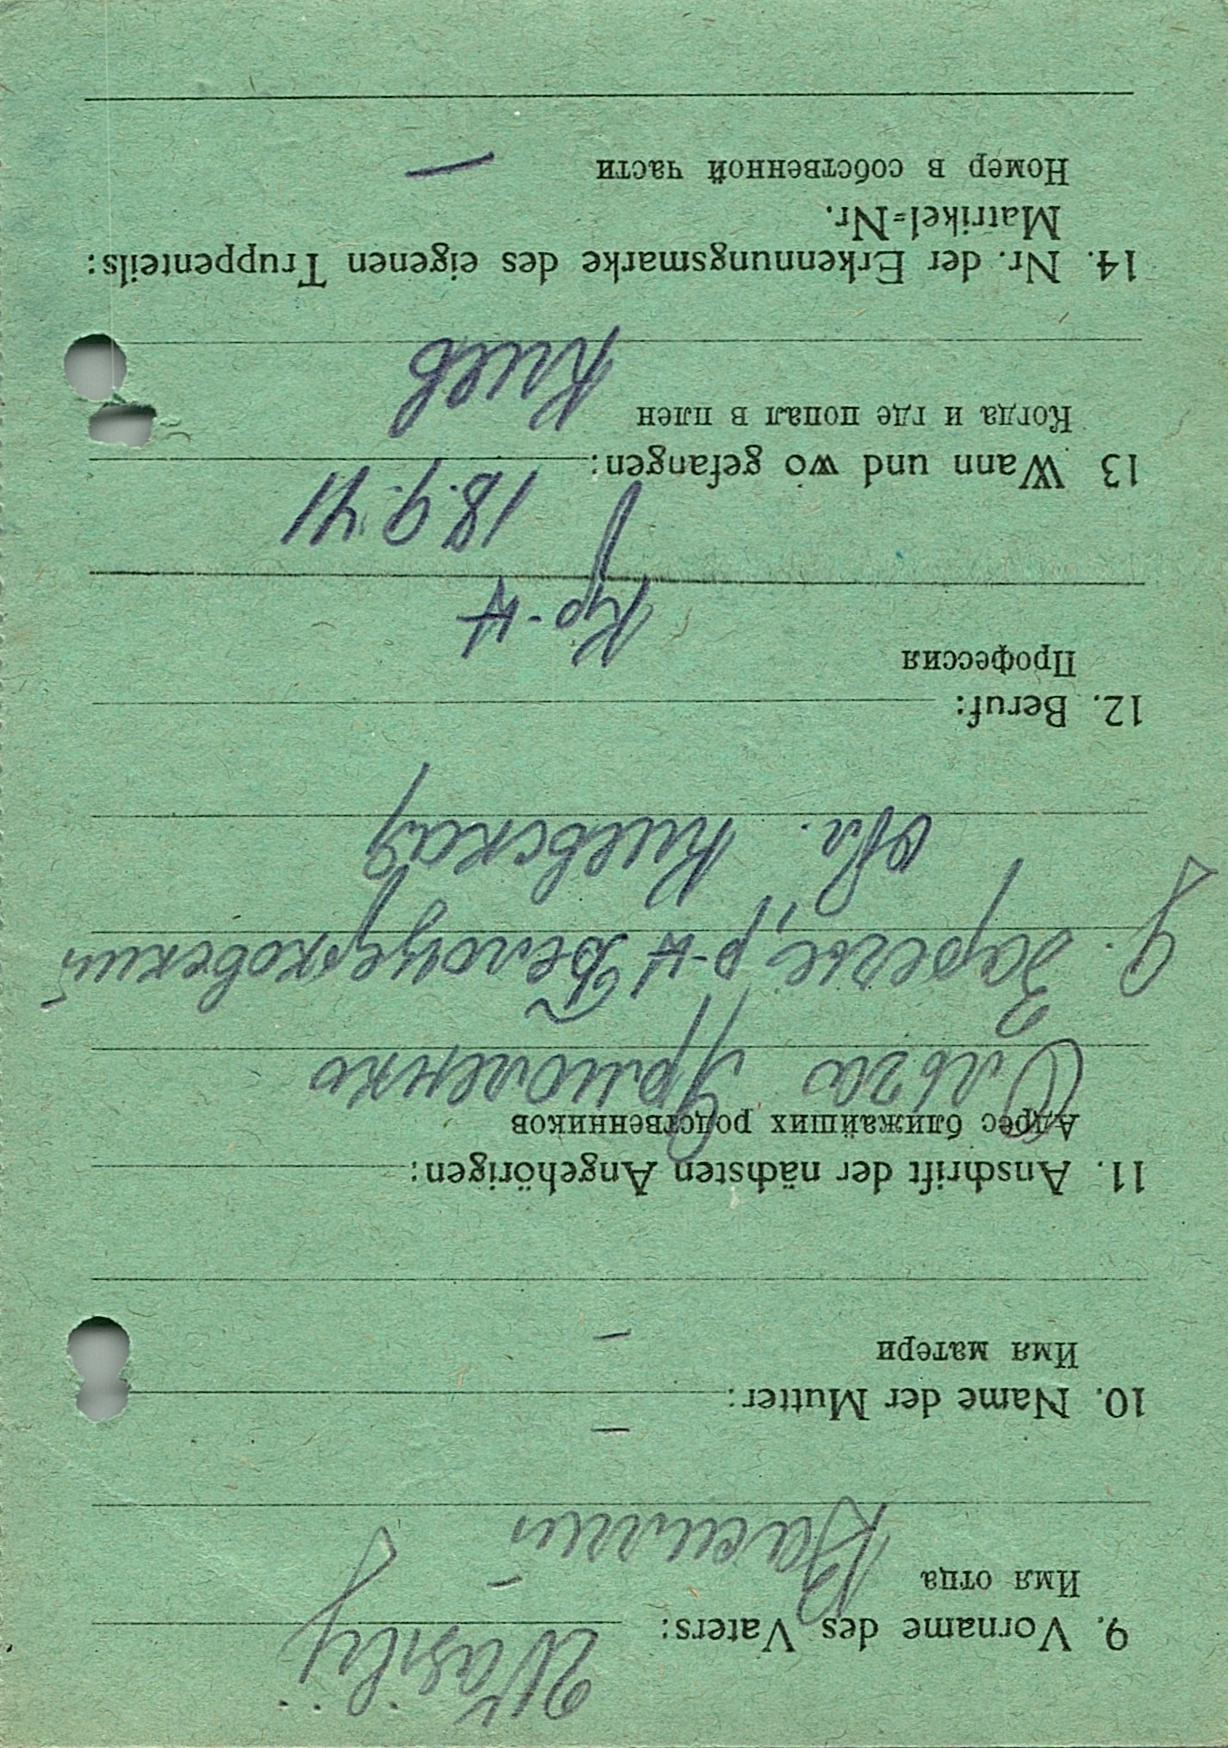 9. Vorname des Vaters: Wasilij
Имя отца
Василий
10. Name der Mutter: —
Имя матери —
11. Anschrift der nächsten Angehörigen:
Адрес ближайших родственников
Ольга Ярмоленко
д. Заречье, р-н Белоцерковский
обл. Киевская
12. Beruf:
Профессия
Кр-н
13 Wann und wo gefangen: 18.9.41
Когда и где попал в плен
Киев
14. Nr. der Erkennungsmarke des eigenen Truppenteils:
Matrikel=Nr.
Номер в собственной части —